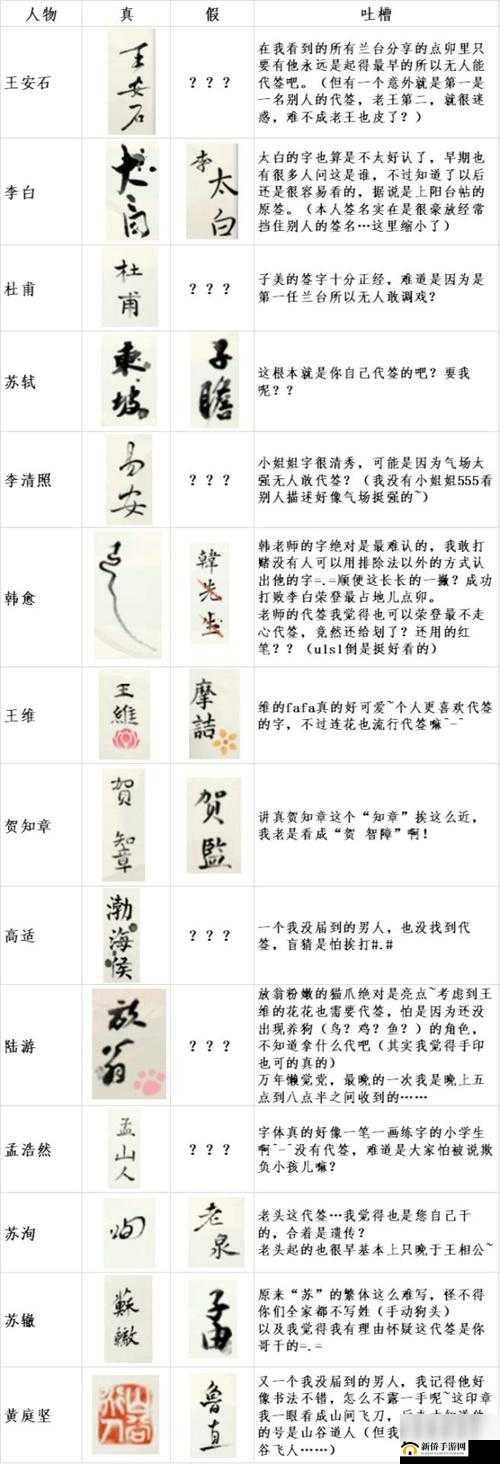 人物 真 假 吐槽
王安石 王安石 ？？？
在我看到的所有兰台分享的点卯里只
要有他永远是起得最早的所以无人能
代签吧。（但有一个意外就是第一是
一名别人的代签，老王第二，就很迷
惑，难不成老王也皮了？）
李白 太白 李太白
太白的字也算是不太好认了，早期也
有很多人问这是谁，不过知道了以后
还是很容易看的，据说是上阳台帖的
原签。（本人签名实在是很豪放经常
挡住别人的签名…这里缩小了）
杜甫 杜甫 ？？？
子美的签字十分正经，难道是因为是
第一任兰台所以无人敢调戏？
苏轼 東坡 子瞻
这根本就是你自己代签的吧？耍我
呢？？
李清照 易安 ？？？
小姐姐字很清秀，可能是因为气场太
强无人敢代签？（我没有小姐姐555看
别人描述好像气场挺强的~）
韩愈 韓先生
韩老师的字绝对是最难认的，我敢打
赌没有人可以用排除法以外的方式认
出他的字=.=顺便这长长的一撇？成功
打败李白荣登最占地儿点卯。
老师的代签我觉得也可以荣登最不走
心代签，竟然还给划了？还用的红
笔？？（uls1倒是挺好看的）
王维 王維 摩詰
维的fafa真的好可爱~个人更喜欢代签
的字，不过连花也流行代签嘛~-~
贺知章 賀知章 贺監
讲真贺知章这个“知章”挨这么近，
我老是看成“贺 智障”啊！
高适 渤海侯 ？？？
一个我没届到的男人，也没找到代
签，盲猜是怕挨打#.#
陆游 放翁 ？？？
放翁粉嫩的猫爪绝对是亮点~考虑到王
维的花花也需要代签，怕是因为还没
出现养狗（鸟？鸡？鱼？）的角色，
不知道拿什么代吧（其实我觉得手印
也可的真的）
万年懒觉党，最晚的一次我是晚上五
点到八点半之间收到的……
孟浩然 孟山人 ？？？
字体真的好像一笔一画练字的小学生
啊~-~没有代签，难道是大家怕被说欺
负小孩儿嘛？
苏洵 洵 老泉
老头这代签…我觉得也是您自己干
的，合着是遗传？
老头起的也很早基本上只晚于王相公~
苏辙 蘇轍 子由
原来“苏”的繁体这么难写，怪不得
你们全家都不写姓（手动狗头）
以及我觉得我有理由怀疑这代签是你
哥干的=.=
黄庭坚 魯直
又一个我没届到的男人，我记得他好
像书法不错，怎么不露一手呢~这印章
我一眼看成山间飞刀，
的号是山谷道人（但我
谷飞人……）
新侨手游网